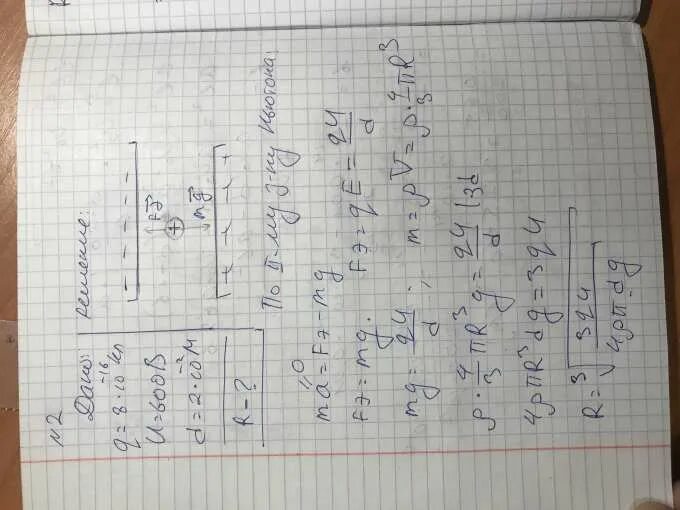 №2
Дано:
q = 8·10⁻¹⁶ Кл
U = 600В
d = 2·10⁻² м
R - ?
Решение:
- - - - - -
Fэ
+
mg
+ + + + +
По II-му з-ну Ньютона:
ma = Fэ - mg
0
Fэ = mg. Fэ = qE = qU/d
mg = qU/d ; m = ρV = ρ·4/3 πR³
ρ·4/3 πR³ g = qU/d |3d
4ρπR³dg = 3qU
R = ³√(3qU/4ρπdg)